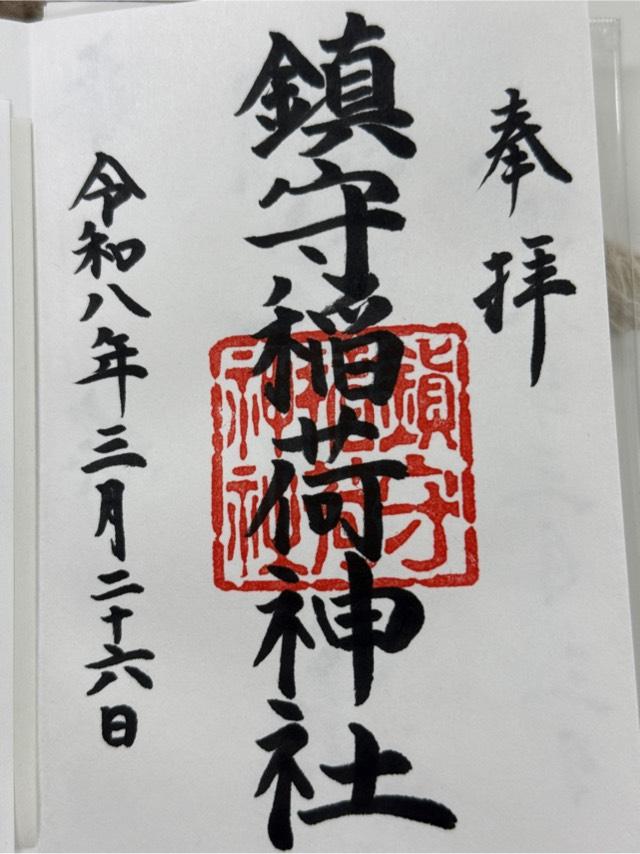 奉拝
鎮守稲荷神社
鎮守稲荷神社
令和八年三月二十六日